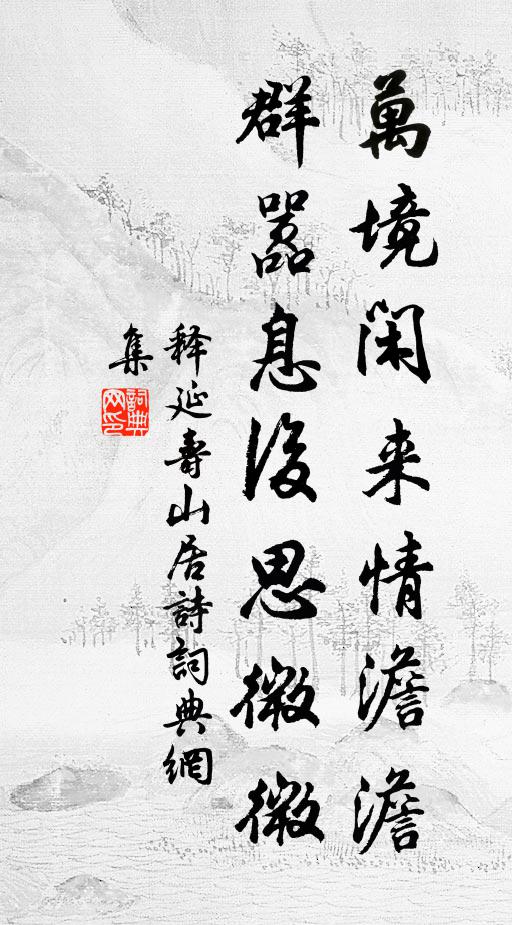 萬境閑来情澹澹
群囂息後思微微
释延壽山居詩詞典網
集
詞典网印